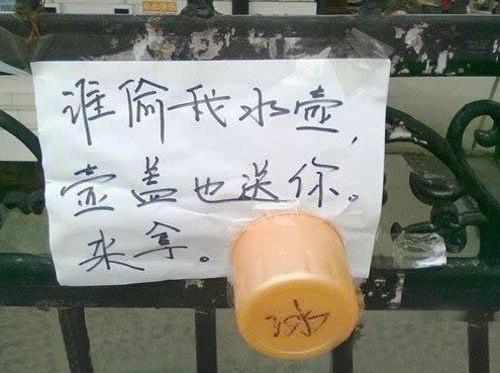 谁偷我水壶，
壶盖也送你。
来拿。